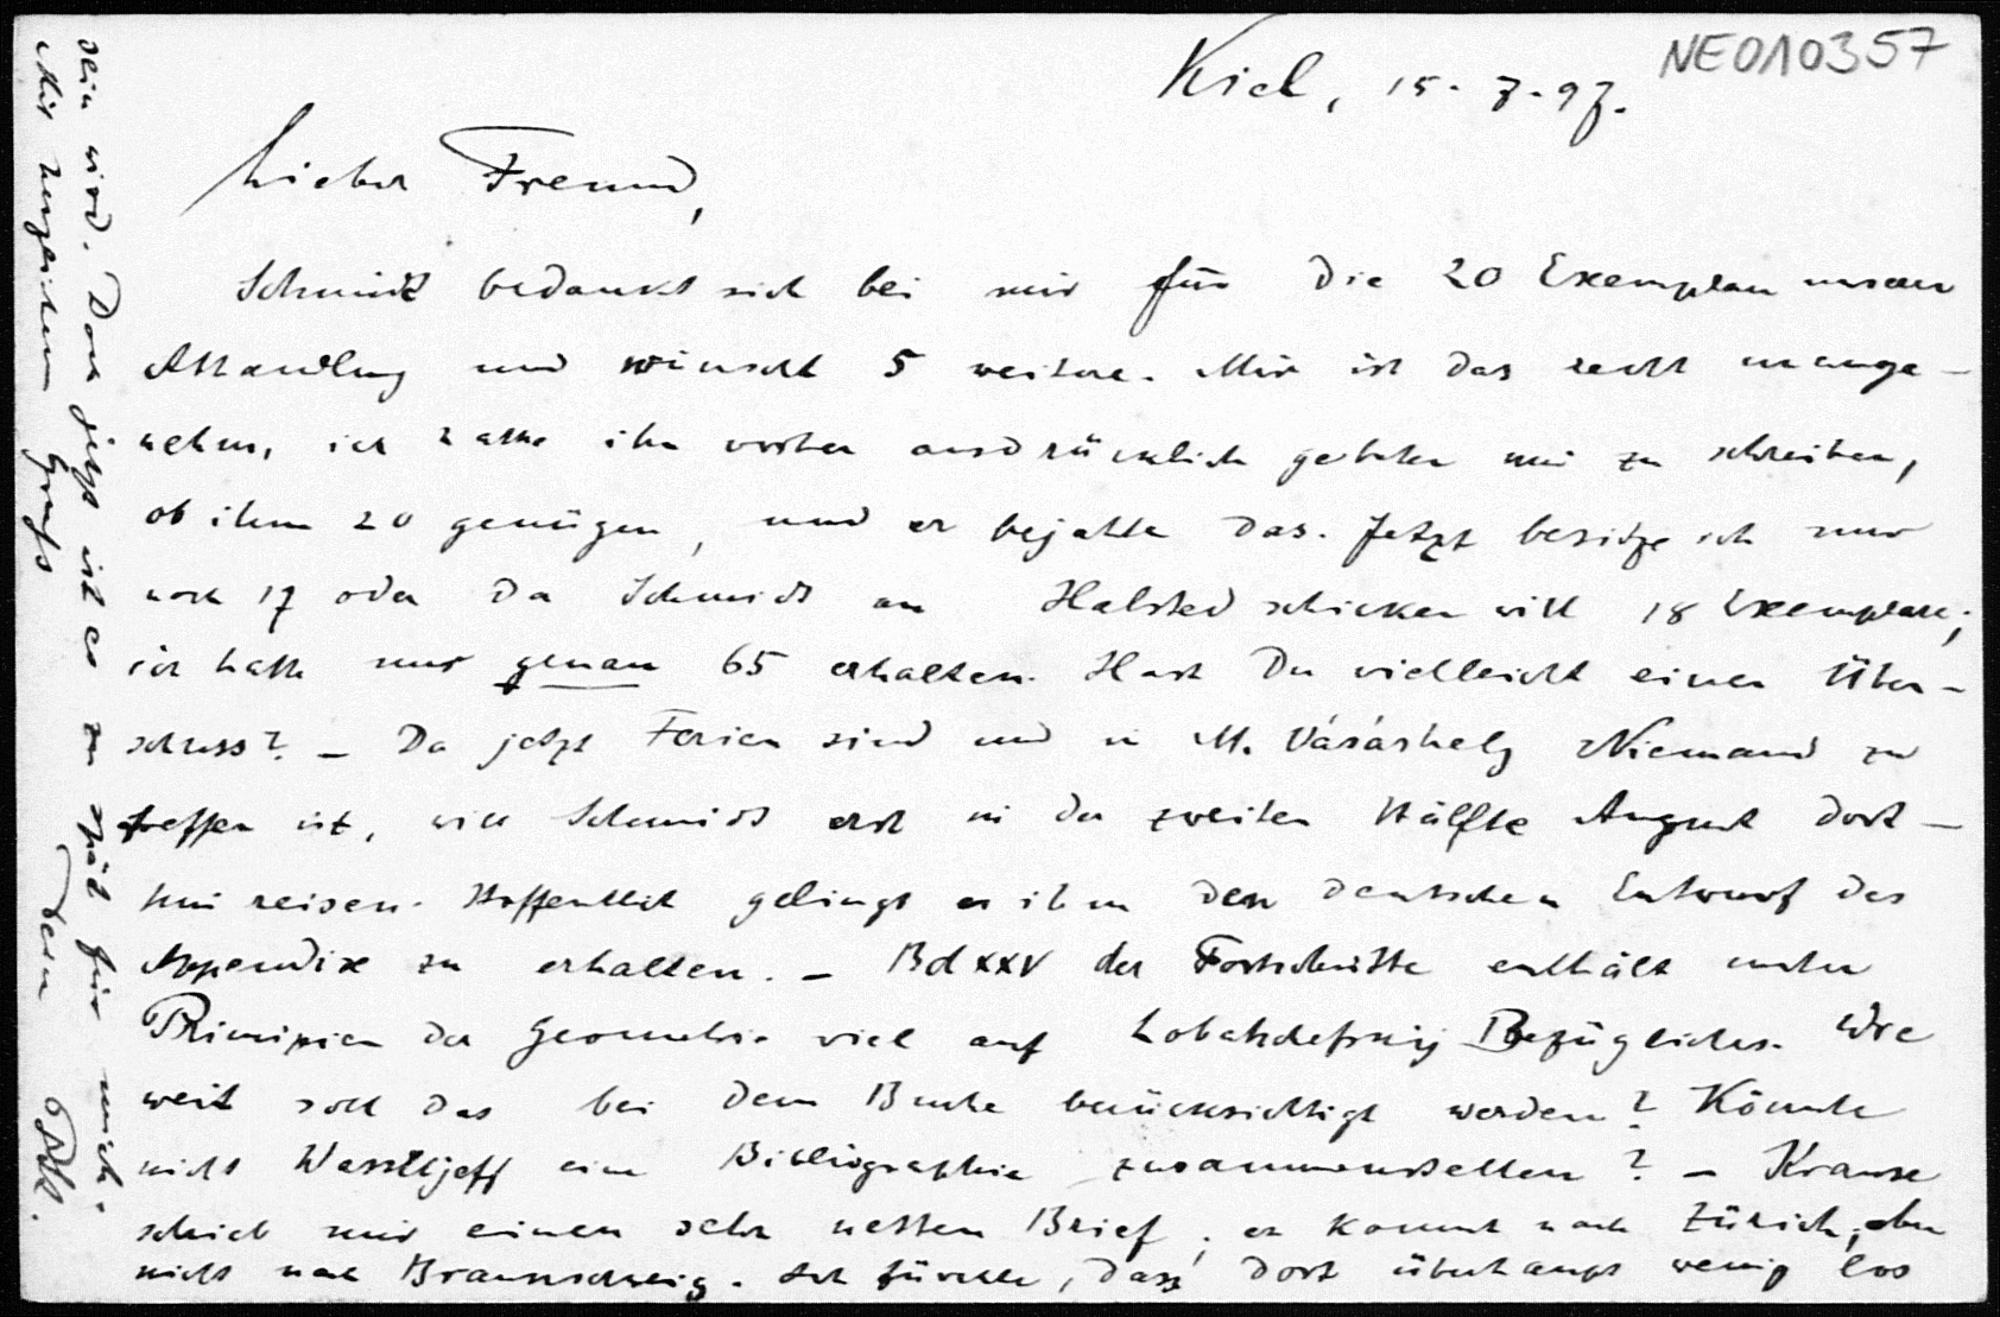 NE010357
Kiel, 15. 7. 97.
Lieber Freund,
Schmidt bedankt sich bei mir für die 20 Exemplare unserer
Abhandlung und wünscht 5 weitere. Mir ist das recht unange-
nehm, ich hatte ihn vorher ausdrücklich gebeten mir zu schreiben,
ob ihm 20 genügen, und er bejahte das. Jetzt besitze ich nur
noch 17 oder da Schmidt an Halsted schicken will 18 Exemplare;
ich hatte nur genau 65 erhalten. Hast Du vielleicht einen Über-
schuss? – Da jetzt Ferien sind und in M. Vásárhely Niemand zu
treffen ist, will Schmidt erst in der zweiten Hälfte August dort-
hin reisen. Hoffentlich gelingt es ihm den deutschen Entwurf des
Appendix zu erhalten. – Bd XXV der Fortschritte enthält unter
Prinzipien der Geometrie viel auf Lobatschefskij Bezügliches. Wie
weit soll das bei dem Buche berücksichtigt werden? Könnte
nicht Wassiljeff eine Bibliographie zusammenstellen? – Krause
schrieb mir einen sehr netten Brief; er kommt nach Zürich, aber
nicht nach Braunschweig. Ich fürchte, dass dort überhaupt wenig los
sein wird. Doch jetzt ist es zu spät für mich.
Mit herzlichem Gruss Dein PSt.